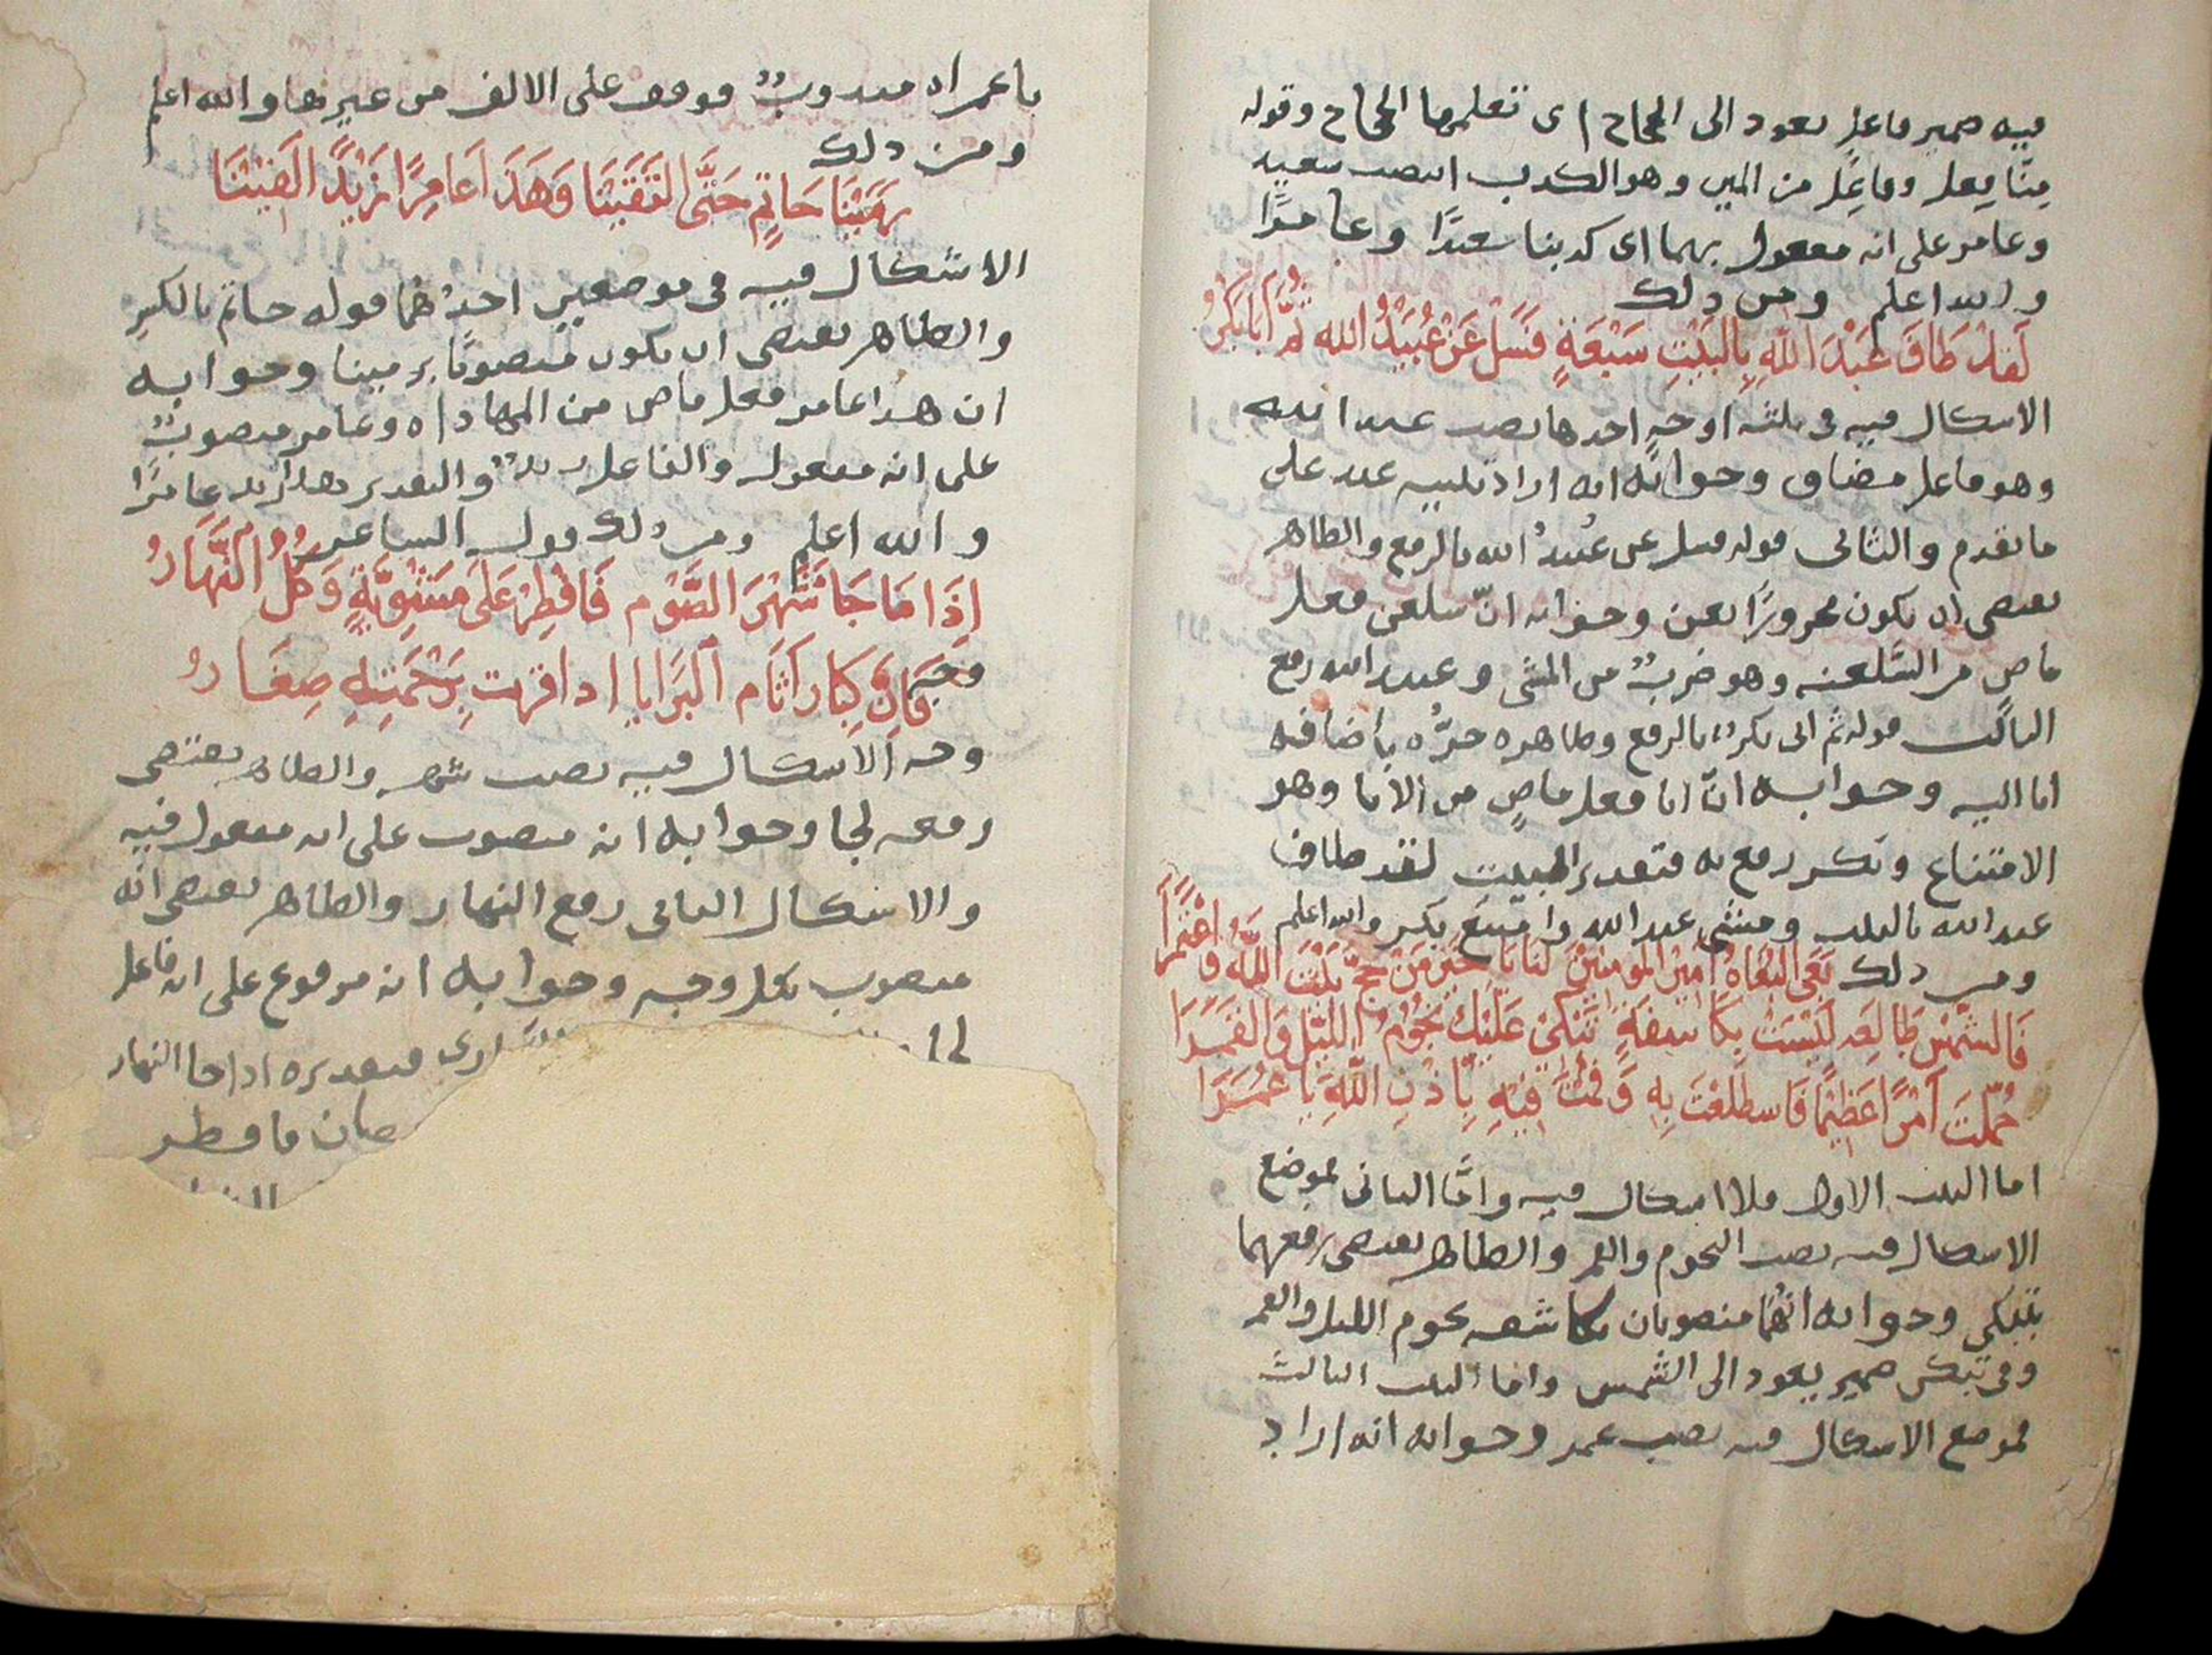 فيه ضمير فاعل يعود الى الحجاج اى تعلمها الحجاج وقوله
مِنّا فعل وفاعل من المين وهو الكدب انتصب سعيد
وعامر على انه مفعول بهما اى كدبنا سعيدًا وعامرًا
والله اعلم ومن ذلك
لَقَدْ طَافَ عَبْدَ اللهِ بِالبَيْتِ سَبْعَةٍ فَسَلْ عَنْ عُبَيْدُ الله ثُمَّ أَبَا بَكْرُ
الاشكال فيه فى ثلثه اوجهٍ احدها نصب عبد الله
وهو فاعل مضاف وجوابه انه اراد تثنيه عبد على
ما تقدم والثانى قوله فسل عن عُبَيدُ الله بالرفع والظاهر
يقتضى ان يكون مجرورًا بعن وجوابه انّ سلعن فعل
ماضٍ من السَّلعنه وهو ضربٌ من المشى وعبيد الله رفع
الثالث قوله ثم ابى بكرٌ بالرفع وظاهره جرُّه باضافه
ابا اليه وجوابه انّ ابا فعل ماضٍ من الابا وهو
الامتناع وبكر رفع به فتقدير البيت لقد طاف
عبد الله بالبيت ومشى عبد الله وامتنع بكر والله اعلم
ومن ذلك نَعَى النُعَاةُ أَمِيْرَ المُومِنِيْنَ لَنَا يَا خَيْرَ مَنْ حَجَّ بَيْتَ اللهِ وَاعْتَمَرَا
فَالشَّمْسُ طَالِعَه لَيْسَتْ بِكَاسِفَةٍ تَبْكِى عَلَيْكَ نُجُوْمَ اللَّيْلِ وَالقَمَرَا
حُمِّلْتَ أَمْرًا عَظِيْمًا فَاسطَلَعْتَ بِهِ وَقُمْتَ فِيْهِ بِاِذْنِ اللهِ يَا عُمَرَا
اما البيت الاول فلا اشكال فيه وامَّا الثانى فموضع
الاشكال فيه نصب النجوم والقمر والظاهر يقتضى رفعهما
بتبكى وجوابه انهما منصوبان بكاسفه نجوم الليل والقمر
وفى تبكى ضمير يعود الى الشمس واما البيت الثالث
فموضع الاشكال فيه نصب عمر وجوابه انه اراد
يا عمراه مندوبٌ فوقف على الالف من غيرها والله اعلم
ومن ذلك
رَمَيْنَا حَاتِمٍ حَتَّى التَقَيْنَا وَهَذَا عَامِرًا زَيْدٌ الَقَيْنَا
الاشكال فيه فى موضعين احدهما قوله حاتم بالكسر
والظاهر يقتضى ان يكون منصوبًا برمينا وجوابه
ان هدا عامر فعل ماض من المهاداه وعامر منصوبٌ
على انه مفعول والفاعل زيدٌ والتقدير هدا زيد عامرًا
والله اعلم ومن ذلك قول الشاعر
إِذَا مَا جَا شَهْرَ الصَّوْمِ فَافْطِرْ عَلَى مَشْوِيَّةٍ وَكُلِ النَّهَارُ
فَاِنَّ كِبَارَ آثَامِ البَرَايَا اِدا قرنت بِرَحْمَتِهِ صِغَارُ
وجه الاشكال فيه نصب شهر والظاهر يقتضى
رفعه لجا وجوابه انه منصوب على انه مفعول فيه
والاشكال الثانى رفع النهار والظاهر يقتضى انه
منصوب بكل وجه وجوابه انه مرفوع على انه فاعل
ارى فتقديره ادا جا النهار
فافطر